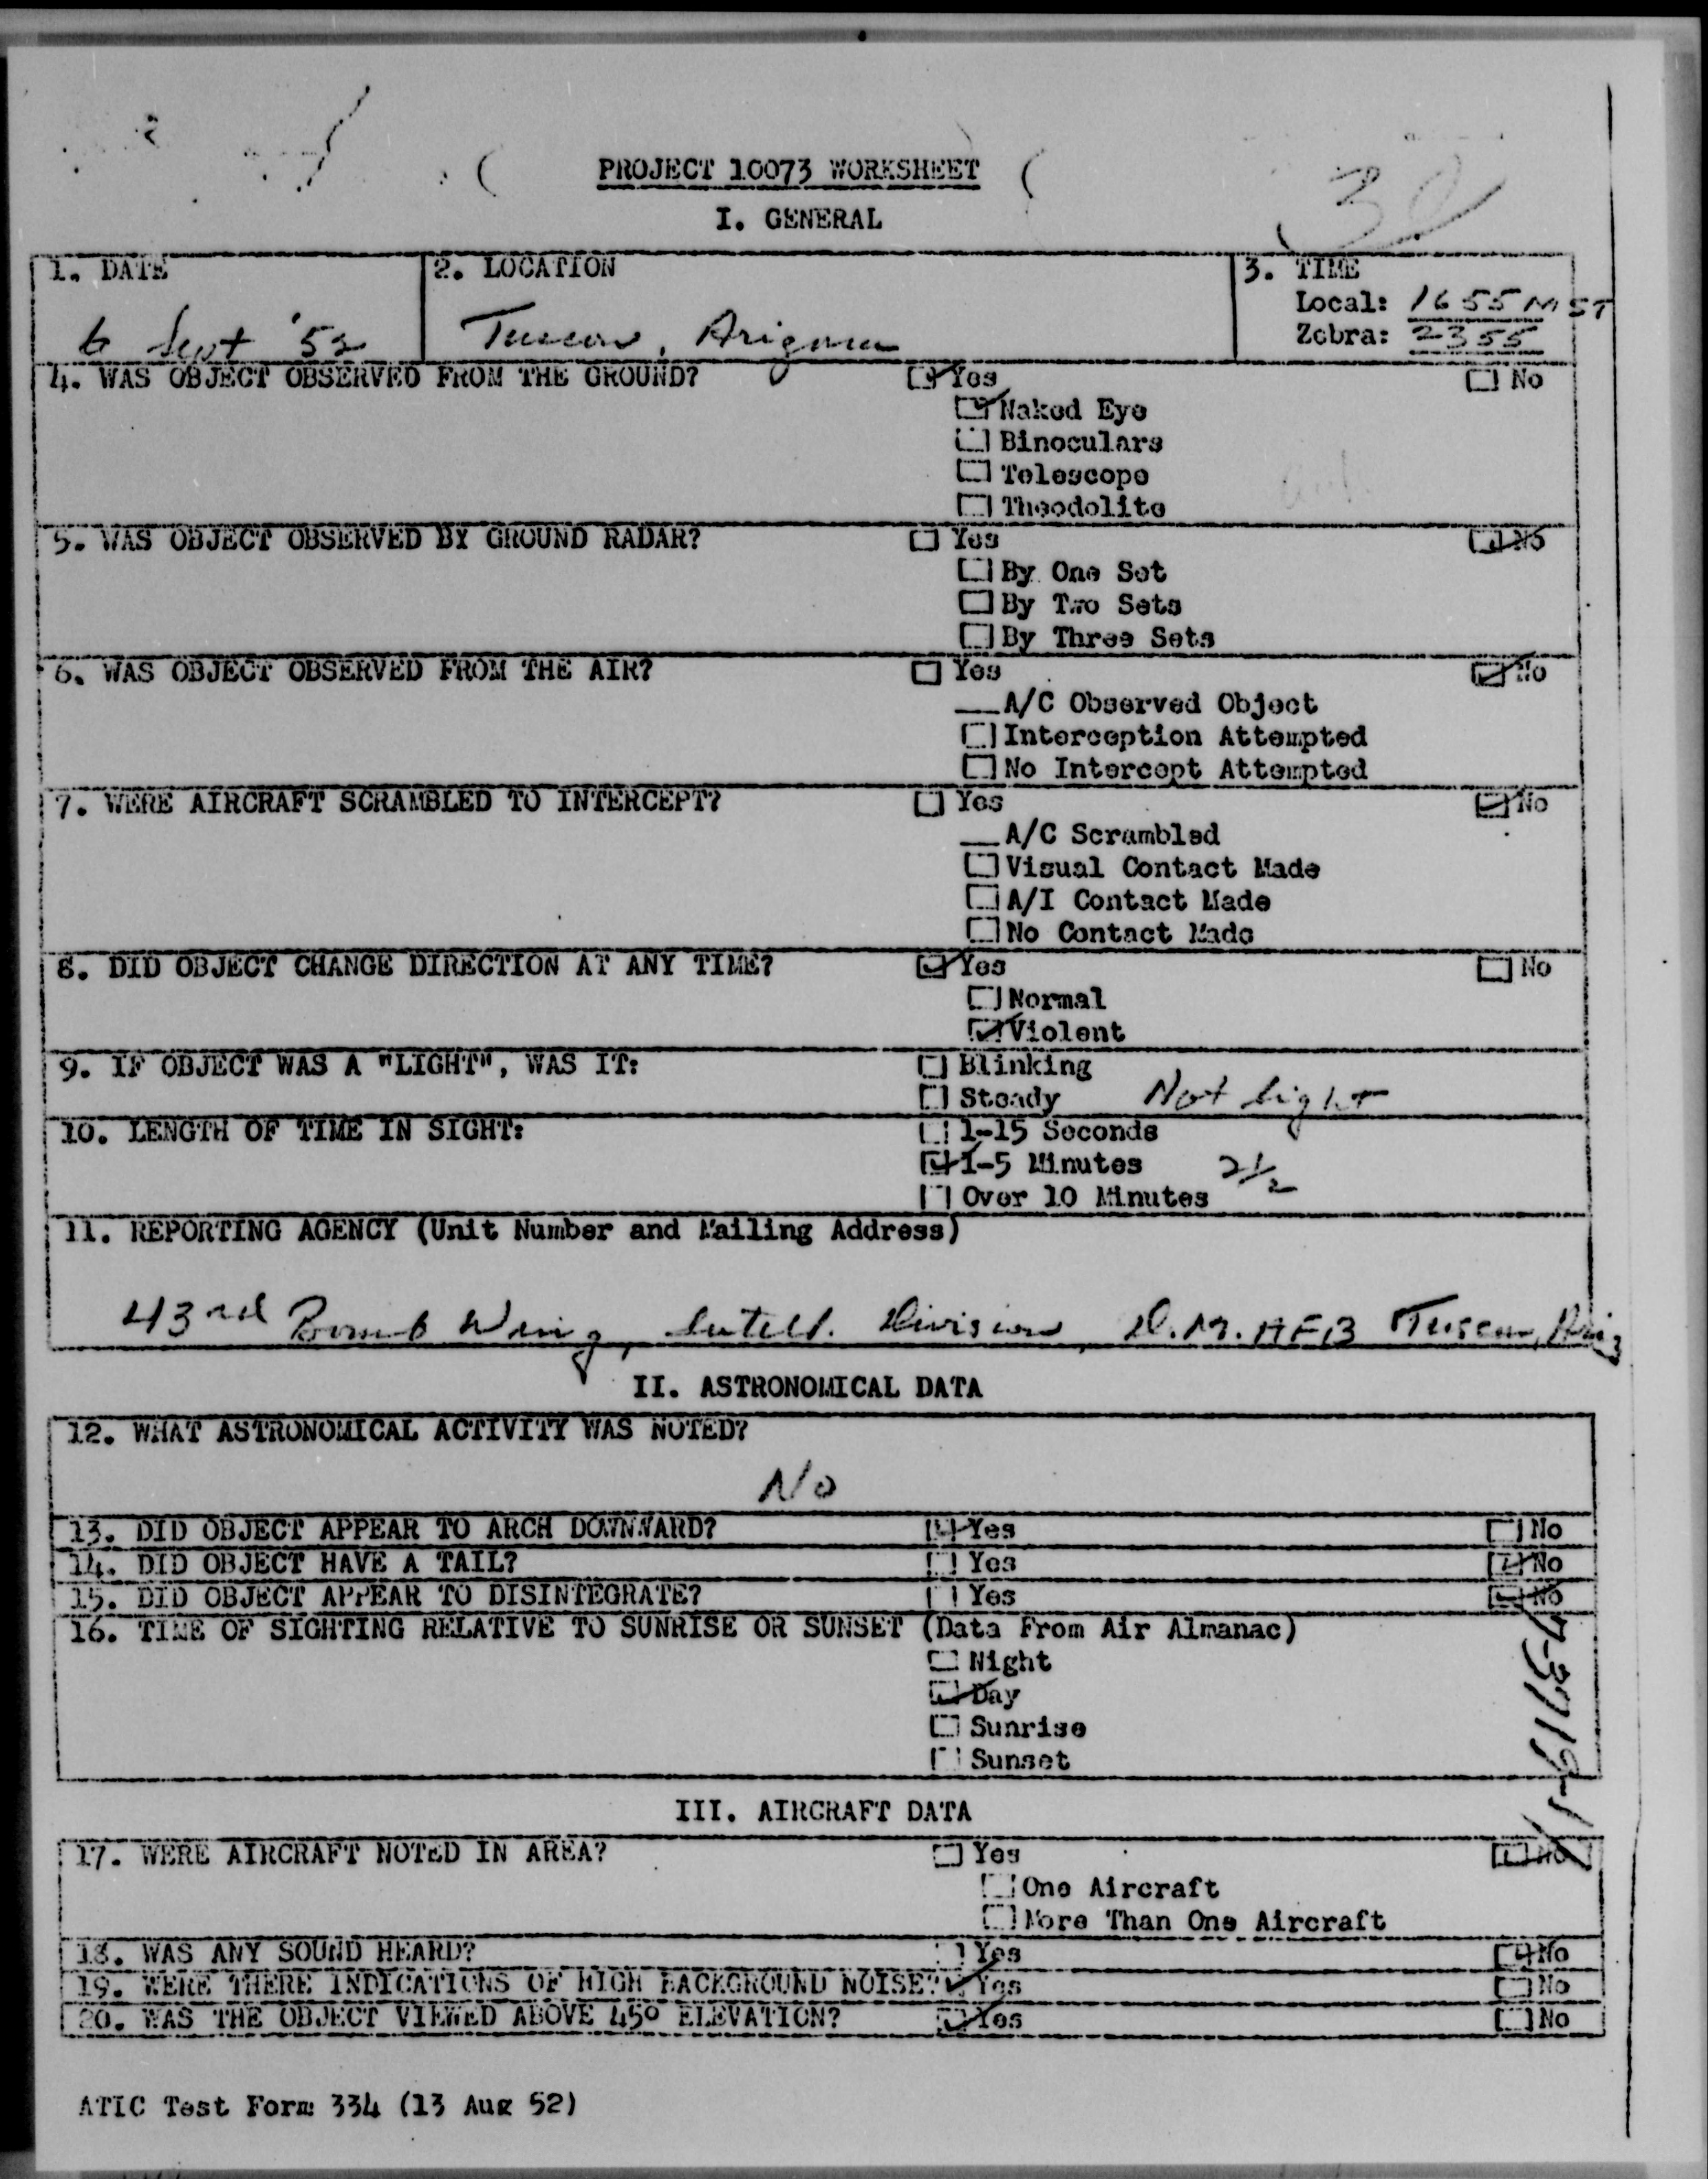 PROJECT 10073 WORKSHEET
I. GENERAL
1. DATE
6 Sept '52
2. LOCATION
Tuscon, Arizona
3. TIME
Local: 1655 MST
Zebra: 2355
4. WAS OBJECT OBSERVED FROM THE GROUND? Yes No
Naked Eye
Binoculars
Telescope
Theodolite
5. WAS OBJECT OBSERVED BY GROUND RADAR? Yes No
By One Set
By Two Sets
By Three Sets
6. WAS OBJECT OBSERVED FROM THE AIR? Yes No
__A/C Observed Object
Interception Attempted
No Intercept Attempted
7. WERE AIRCRAFT SCRAMBLED TO INTERCEPT? Yes No
__A/C Scrambled
Visual Contact Made
A/I Contact Made
No Contact Made
8. DID OBJECT CHANGE DIRECTION AT ANY TIME? Yes No
Normal
Violent
9. IF OBJECT WAS A "LIGHT", WAS IT: Blinking
Steady Not light
10. LENGTH OF TIME IN SIGHT: 1-15 Seconds
1-5 Minutes 2½
Over 10 Minutes
11. REPORTING AGENCY (Unit Number and Mailing Address)
43rd Bomb Wing, Intell. Division, D.M. AFB Tuscon, Ariz
II. ASTRONOMICAL DATA
12. WHAT ASTRONOMICAL ACTIVITY WAS NOTED?
No
13. DID OBJECT APPEAR TO ARCH DOWNWARD? Yes No
14. DID OBJECT HAVE A TAIL? Yes No
15. DID OBJECT APPEAR TO DISINTEGRATE? Yes No
16. TIME OF SIGHTING RELATIVE TO SUNRISE OR SUNSET (Data From Air Almanac)
Night
Day
Sunrise
Sunset
III. AIRCRAFT DATA
17. WERE AIRCRAFT NOTED IN AREA? Yes No
One Aircraft
More Than One Aircraft
18. WAS ANY SOUND HEARD? Yes No
19. WERE THERE INDICATIONS OF HIGH BACKGROUND NOISE? Yes No
20. WAS THE OBJECT VIEWED ABOVE 45° ELEVATION? Yes No
ATIC Test Form 334 (13 Aug 52)